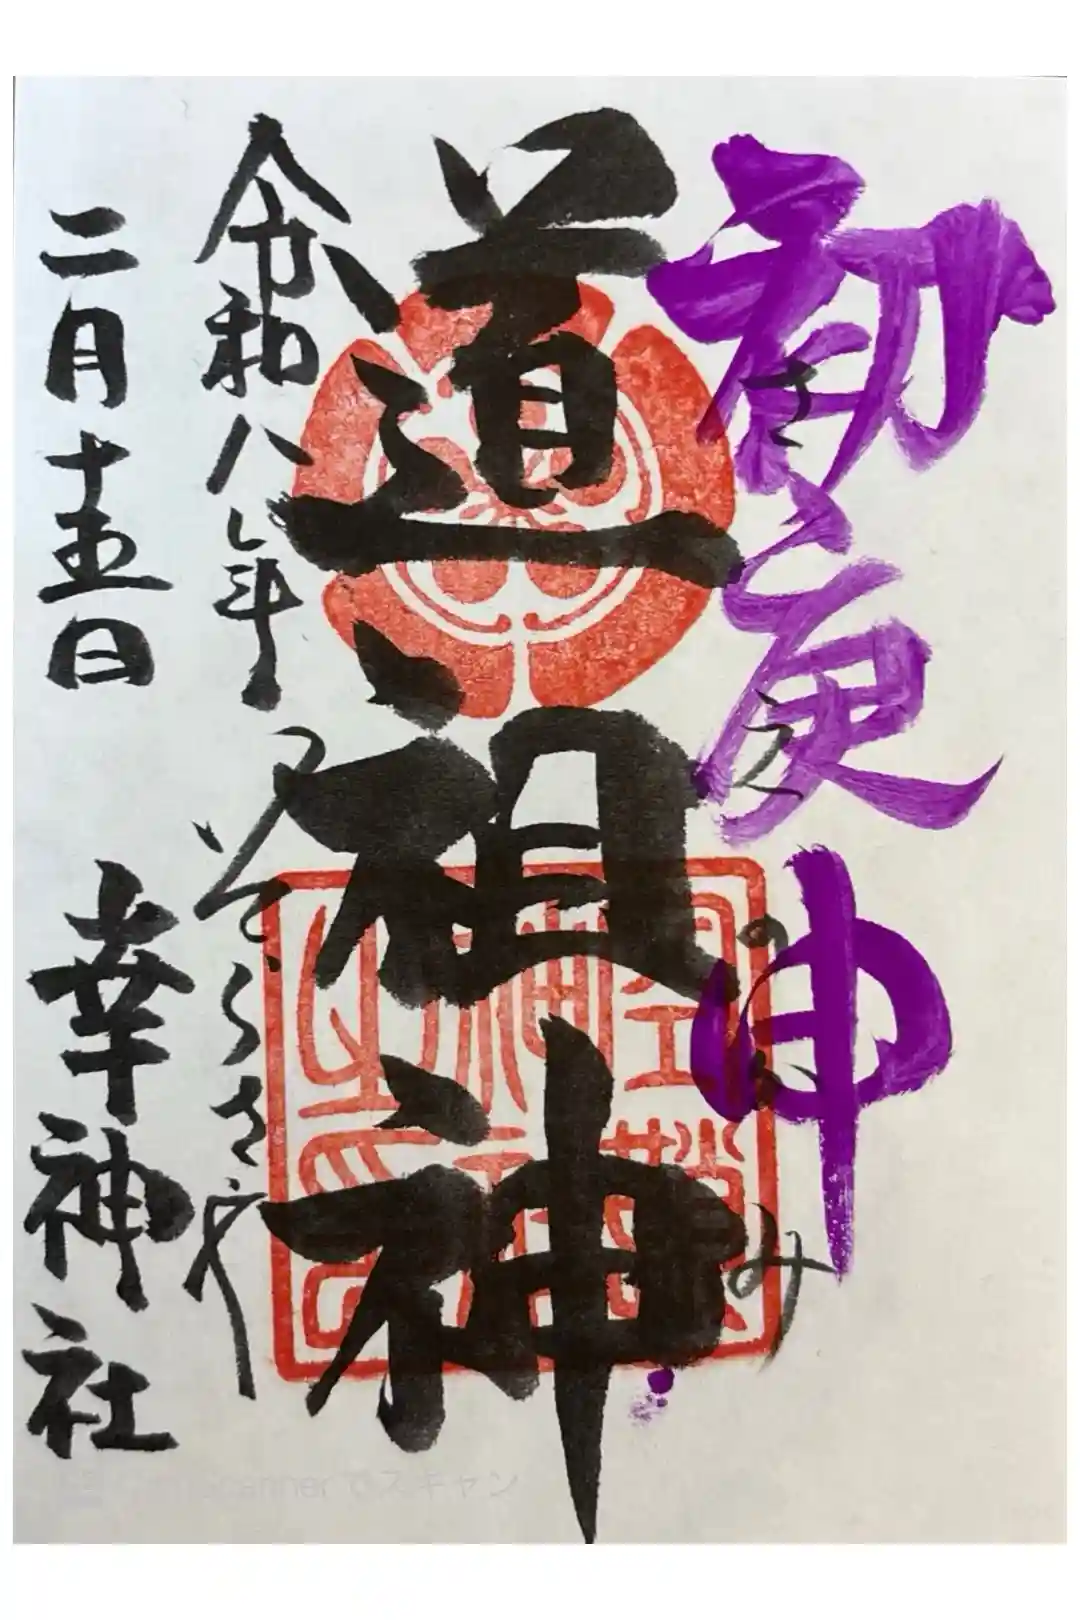 初庚申
さえのかみ
道祖神
令和八年
二月十五日
幸神社
Scannerでスキャン